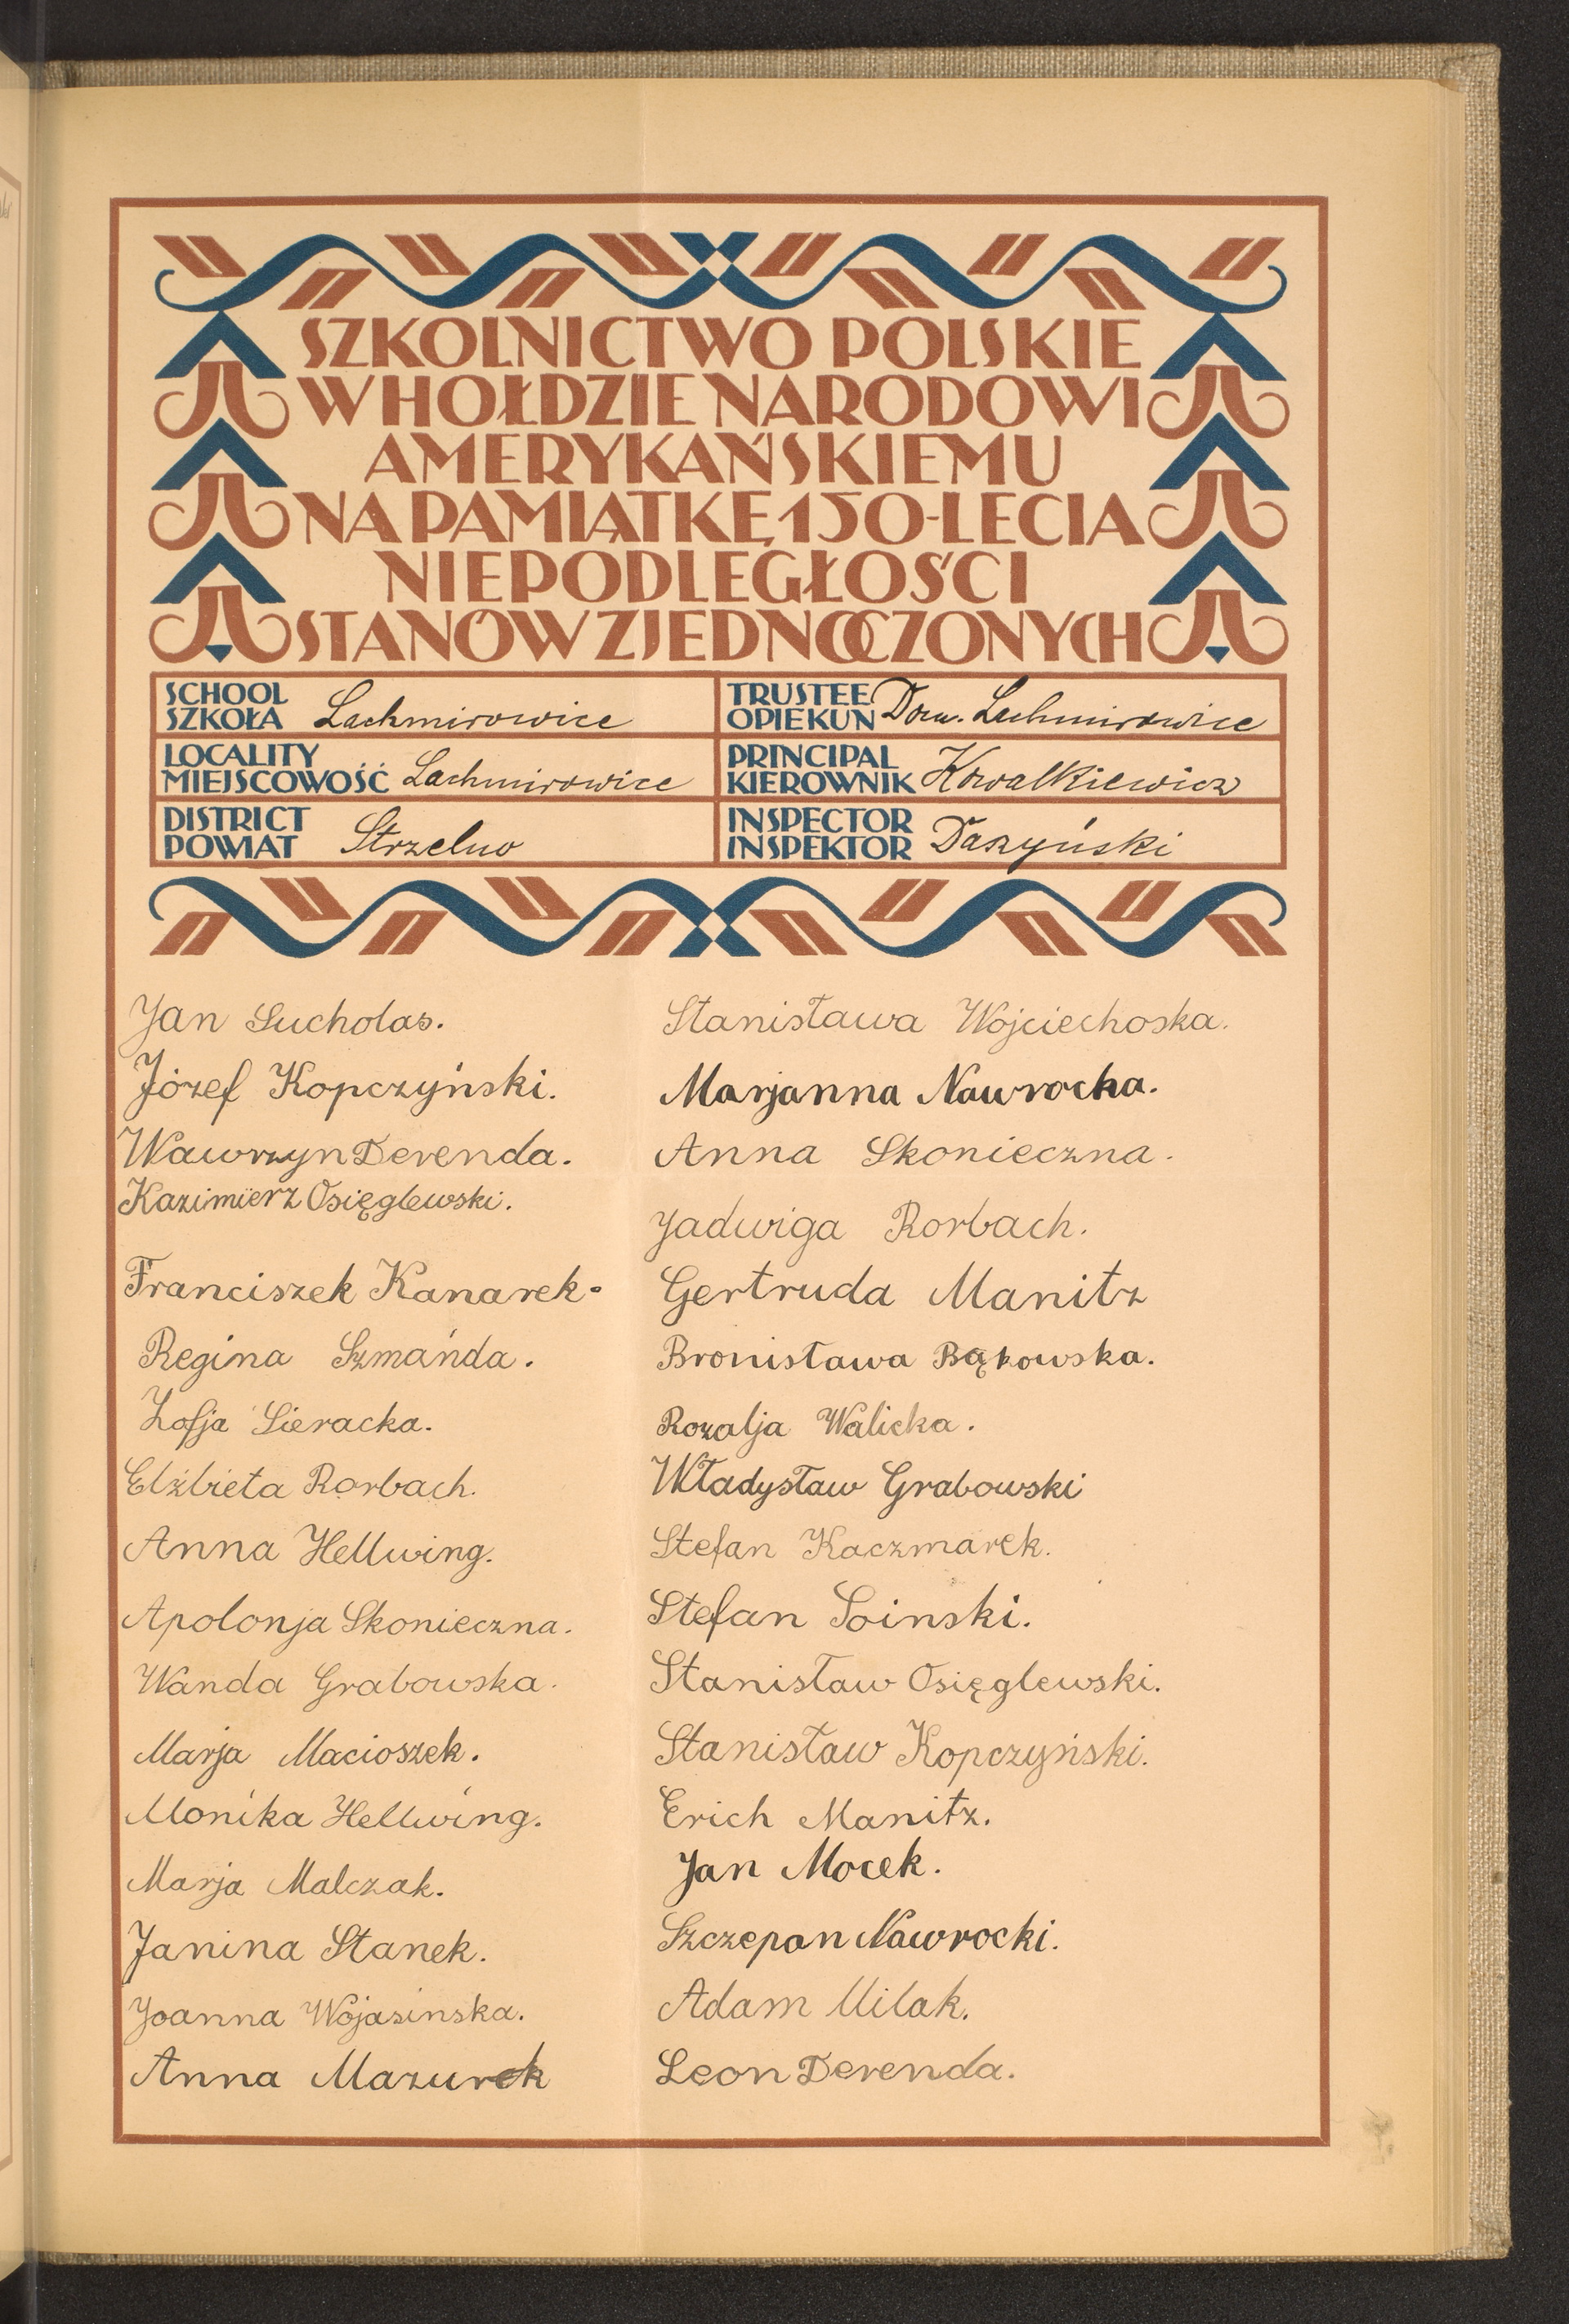 SZKOLNICTWO POLSKIE
W HOŁDZIE NARODOWI
AMERYKAŃSKIEMU
NA PAMIĄTKĘ 150-LECIA
NIEPODLEGŁOŚCI
STANÓW ZJEDNOCZONYCH
SCHOOL
SZKOŁA Lachmirowice
TRUSTEE
OPIEKUN Dom. Lachmirowice
LOCALITY
MIEJSCOWOŚĆ Lachmirowice
PRINCIPAL
KIEROWNIK Kowalkiewicz
DISTRICT
POWIAT Strzelno
INSPECTOR
INSPEKTOR Daszyński
Jan Sucholas.
Józef Kopczyński.
Wawrzyn Derenda.
Kazimierz Osięglewski.
Franciszek Kanarek.
Regina Szmańda.
Zofja Sieracka.
Elżbieta Rorbach.
Anna Hellwing.
Apolonja Skonieczna.
Wanda Grabowska.
Marja Macioszek.
Monika Hellwing.
Marja Malczak.
Janina Stanek.
Joanna Wojasinska.
Anna Mazurek
Stanisława Wojciechoska.
Marjanna Nawrocka.
Anna Skonieczna.
Jadwiga Rorbach.
Gertruda Manitz
Bronisława Bąkowska.
Rozalja Walicka.
Władysław Grabowski
Stefan Kaczmarek.
Stefan Soinski.
Stanisław Osięglewski.
Stanisław Kopczyński.
Erich Manitz.
Jan Mocek.
Szczepan Nawrocki.
Adam Milak.
Leon Derenda.